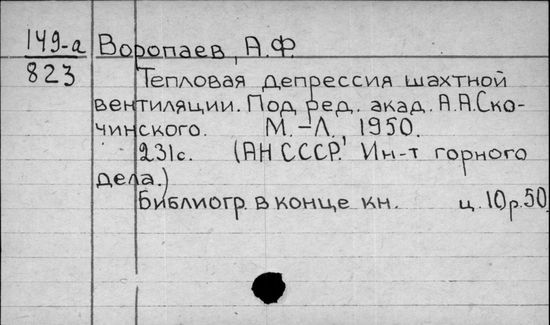 149-а Воропаев, А.Ф
823 Тепловая депрессия шахтной
вентиляции. Под ред. акад. А.А.Ско-
чинского. М.-Л., 1950.
231с. (АН СССР. Ин-т горного
дела.)
Библиогр. в конце кн. ц. 10р.50